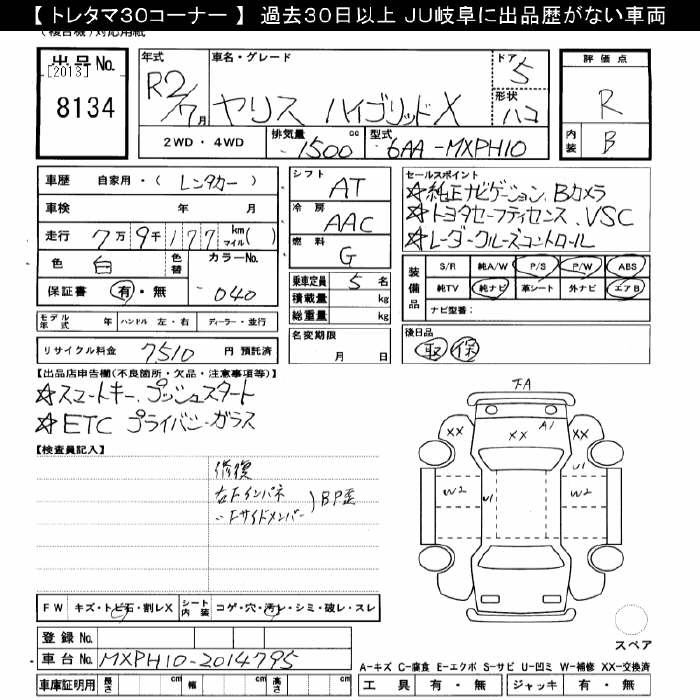 【 トレタマ30コーナー 】 過去30日以上 JU岐阜に出品歴がない車両
出品No.
[2013]
8134
年式
R2/7月
車名・グレード
ヤリス ハイブリッドX
ドア
5
形状
ハコ
評価点
R
内装
B
2WD・4WD
排気量
1500 cc
型式
6AA-MXPH10
車歴 自家用・(レンタカー)
車検 年 月
走行 7万9千177 km マイル( )
色 白 色替 カラーNo.
保証書 有・無 040
シフト
AT
冷房
AAC
燃料
G
乗車定員 5 名
積載量 kg
総重量 kg
セールスポイント
☆純正ナビゲーション、Bカメラ
☆トヨタセーフティセンス、VSC
☆レーダークルーズコントロール
装備品
S/R 純A/W P/S P/W ABS
純TV 純ナビ 革シート 外ナビ エアB
ナビ型番：
モデル年式 年 ハンドル 左・右 ディーラー・並行
名変期限
月 日
後日品
取 保
リサイクル料金 7510 円 預託済
【出品店申告欄(不良箇所・欠品・注意事項等)】
☆スマートキー、プッシュスタート
☆ETC プライバシーガラス
【検査員記入】
修復
右Fインパネ
〃Fサイドメンバー
)BP歪
FA
XX XX A1 XX
U1
W2 U1 W2
FW キズ・トビ石・割レX シート内装 コゲ・穴・汚レ・シミ・破レ・スレ
スペア
登録No.
車台No. MXPH10-2014795
A-キズ C-腐食 E-エクボ S-サビ U-凹ミ W-補修 XX-交換済
車庫証明用 長さ cm 幅 cm 高さ cm
工具 有・無 ジャッキ 有・無